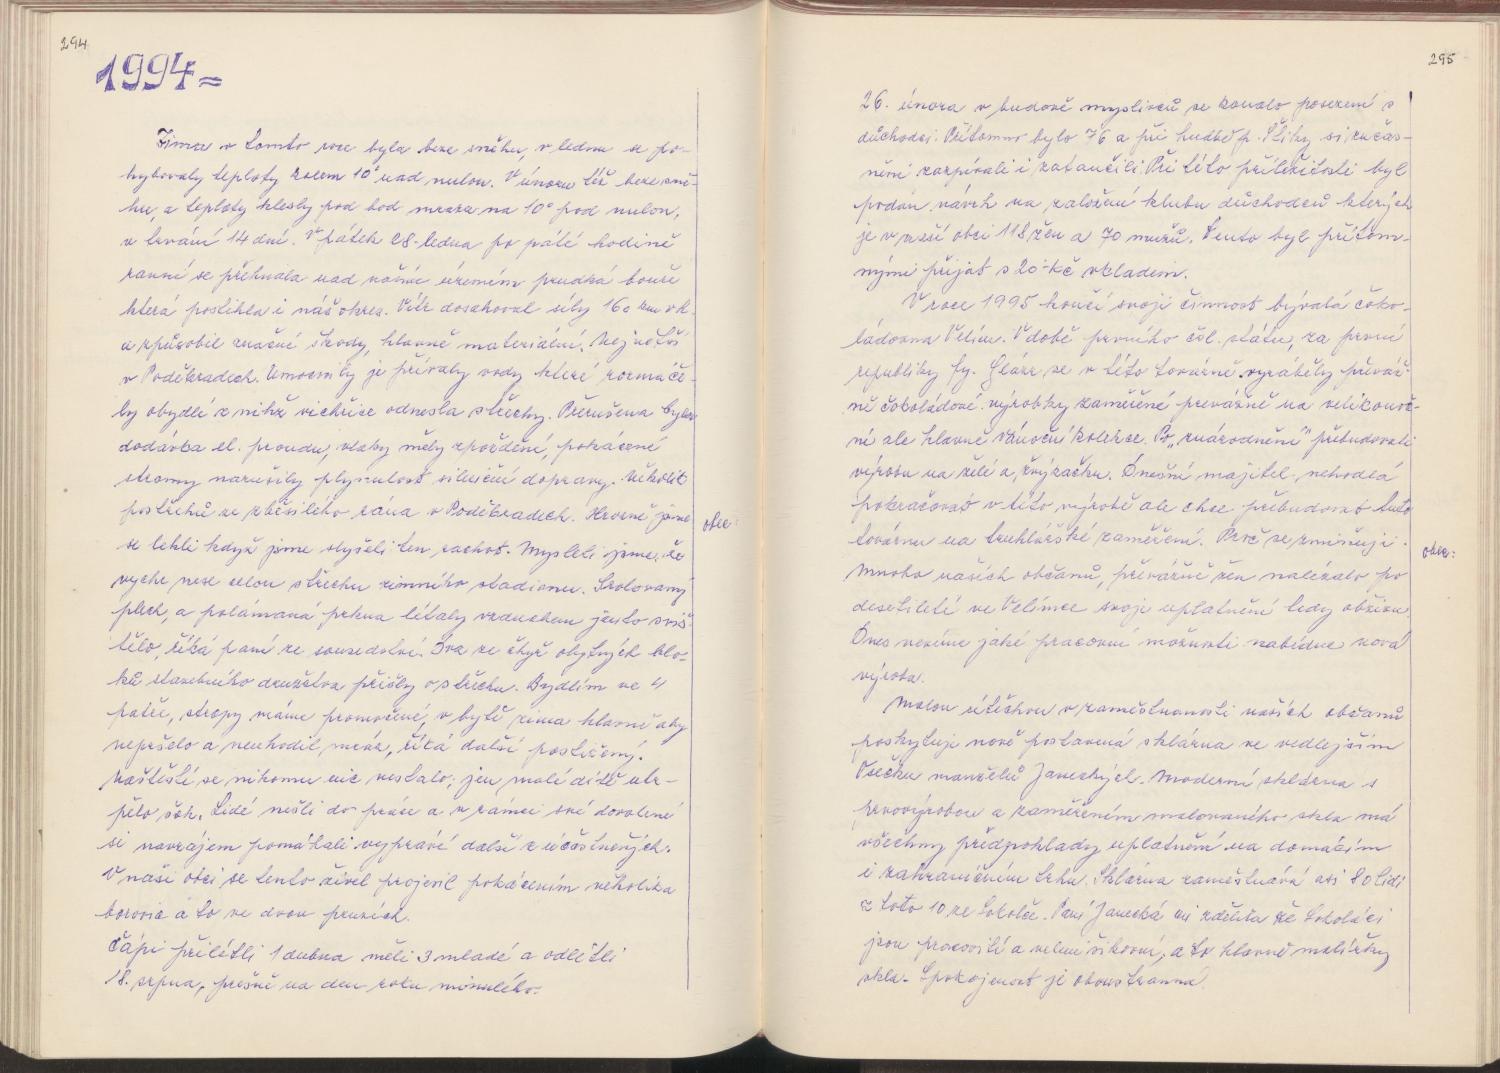 294
1994=
Zima v tomto roce byla beze sněhu, v lednu se po-
hybovaly teploty kolem 10° nad nulou. V únoru též beze sně-
hu, a teploty klesly pod bod mrazu na 10° pod nulou,
v trvání 14 dní. V pátek 28. ledna po páté hodině
ranní se přehnala nad naším územím prudká bouře
která postihla i náš okres. Vítr dosahoval síly 160 km v h.
a způsobil značné škody, hlavně materiální. Největší
v Poděbradech. Umocnily je přívaly vody které rozmáče-
ly obydlí z nichž vichřice odnesla střechy. Přerušena byla
dodávka el. proudu, vlaky měly zpoždění, pokácené
stromy narušily plynulost silniční dopravy. Několik
postřehů ze zběsilého rána v Poděbradech. Hrozně jsme
se lekli když jsme slyšeli ten rachot. Mysleli jsme, že
vychr nese celou střechu zimního stadionu. Srolovaný
plech, a polámaná prkna lítaly vzduchem jen to sviš-
tělo, říká paní ze sousedství. Dva ze čtyř obytných blo-
ků stavebního družstva přišly o střechu. Bydlím ve 4
patře, stropy máme promočené, v bytě zima hlavně aby
nepršelo a neuhodil mráz, říká další postižený.
Naštěstí se nikomu nic nestalo, jen malé dítě utr-
pělo šok. Lidé nešli do práce a v rámci své dovolené
si navzájem pomáhali vypráví další z zúčastněných.
V naší obci se tento živel projevil pokácením několika
borovic a to ve dvou pruzích.
Čápi přilétli 1 dubna měli 3 mladé a odlétli
18. srpna, přesně na den roku minulého.
obec:
295
26. února v budově myslivců se konalo posezení s
důchodci. Přítomno bylo 76 a při hudbě p. Šliky si zúčas-
nění zazpívali i zatančili. Při této příležitosti byl
podán návrh na založení klubu důchodců kterých
je v naší obci 118 žen a 70 mužů. Tento byl přítom-
nými přijat s 20 Kč vkladem.
V roce 1995 končí svoji činnost bývalá čoko-
ládovna Velim. V době prvního čsl. státu, za první
republiky fy. Glázr se v této továrně vyráběly převáž-
ně čokoládové výrobky zaměřené převážně na velikonoč-
ní ale hlavně vánoční kolekce. Po „znárodnění" přebudovali
výrobu na želé a žvýkačku. Dnešní majitel nehodlá
pokračovat v této výrobě ale chce přebudovat tuto
továrnu na truhlářské zaměření. Proč se zmiňuji.
Mnoho našich občanů, převážně žen nalézalo po
desetiletí ve Velimce svoje uplatnění tedy obživu.
Dnes nevíme jaké pracovní možnosti nabídne nová
výroba.
Malou útěchou v zaměstnanosti našich občanů
poskytuje nově postavená sklárna ve vedlejším
Osečku manželů Janeckých. Moderní sklárna s
prvovýrobou a zaměřením malovaného skla má
všechny předpohlady uplatnění na domácím
i zahraničním trhu. Sklárna zaměstnává asi 80 lidí
z toto 10 ze Sokolče. Paní Janecká mi zdělila že Sokoláci
jsou pracovití a velmi šikovní, a to hlavně malířky
skla. Spokojenost je oboustranná.
obec: